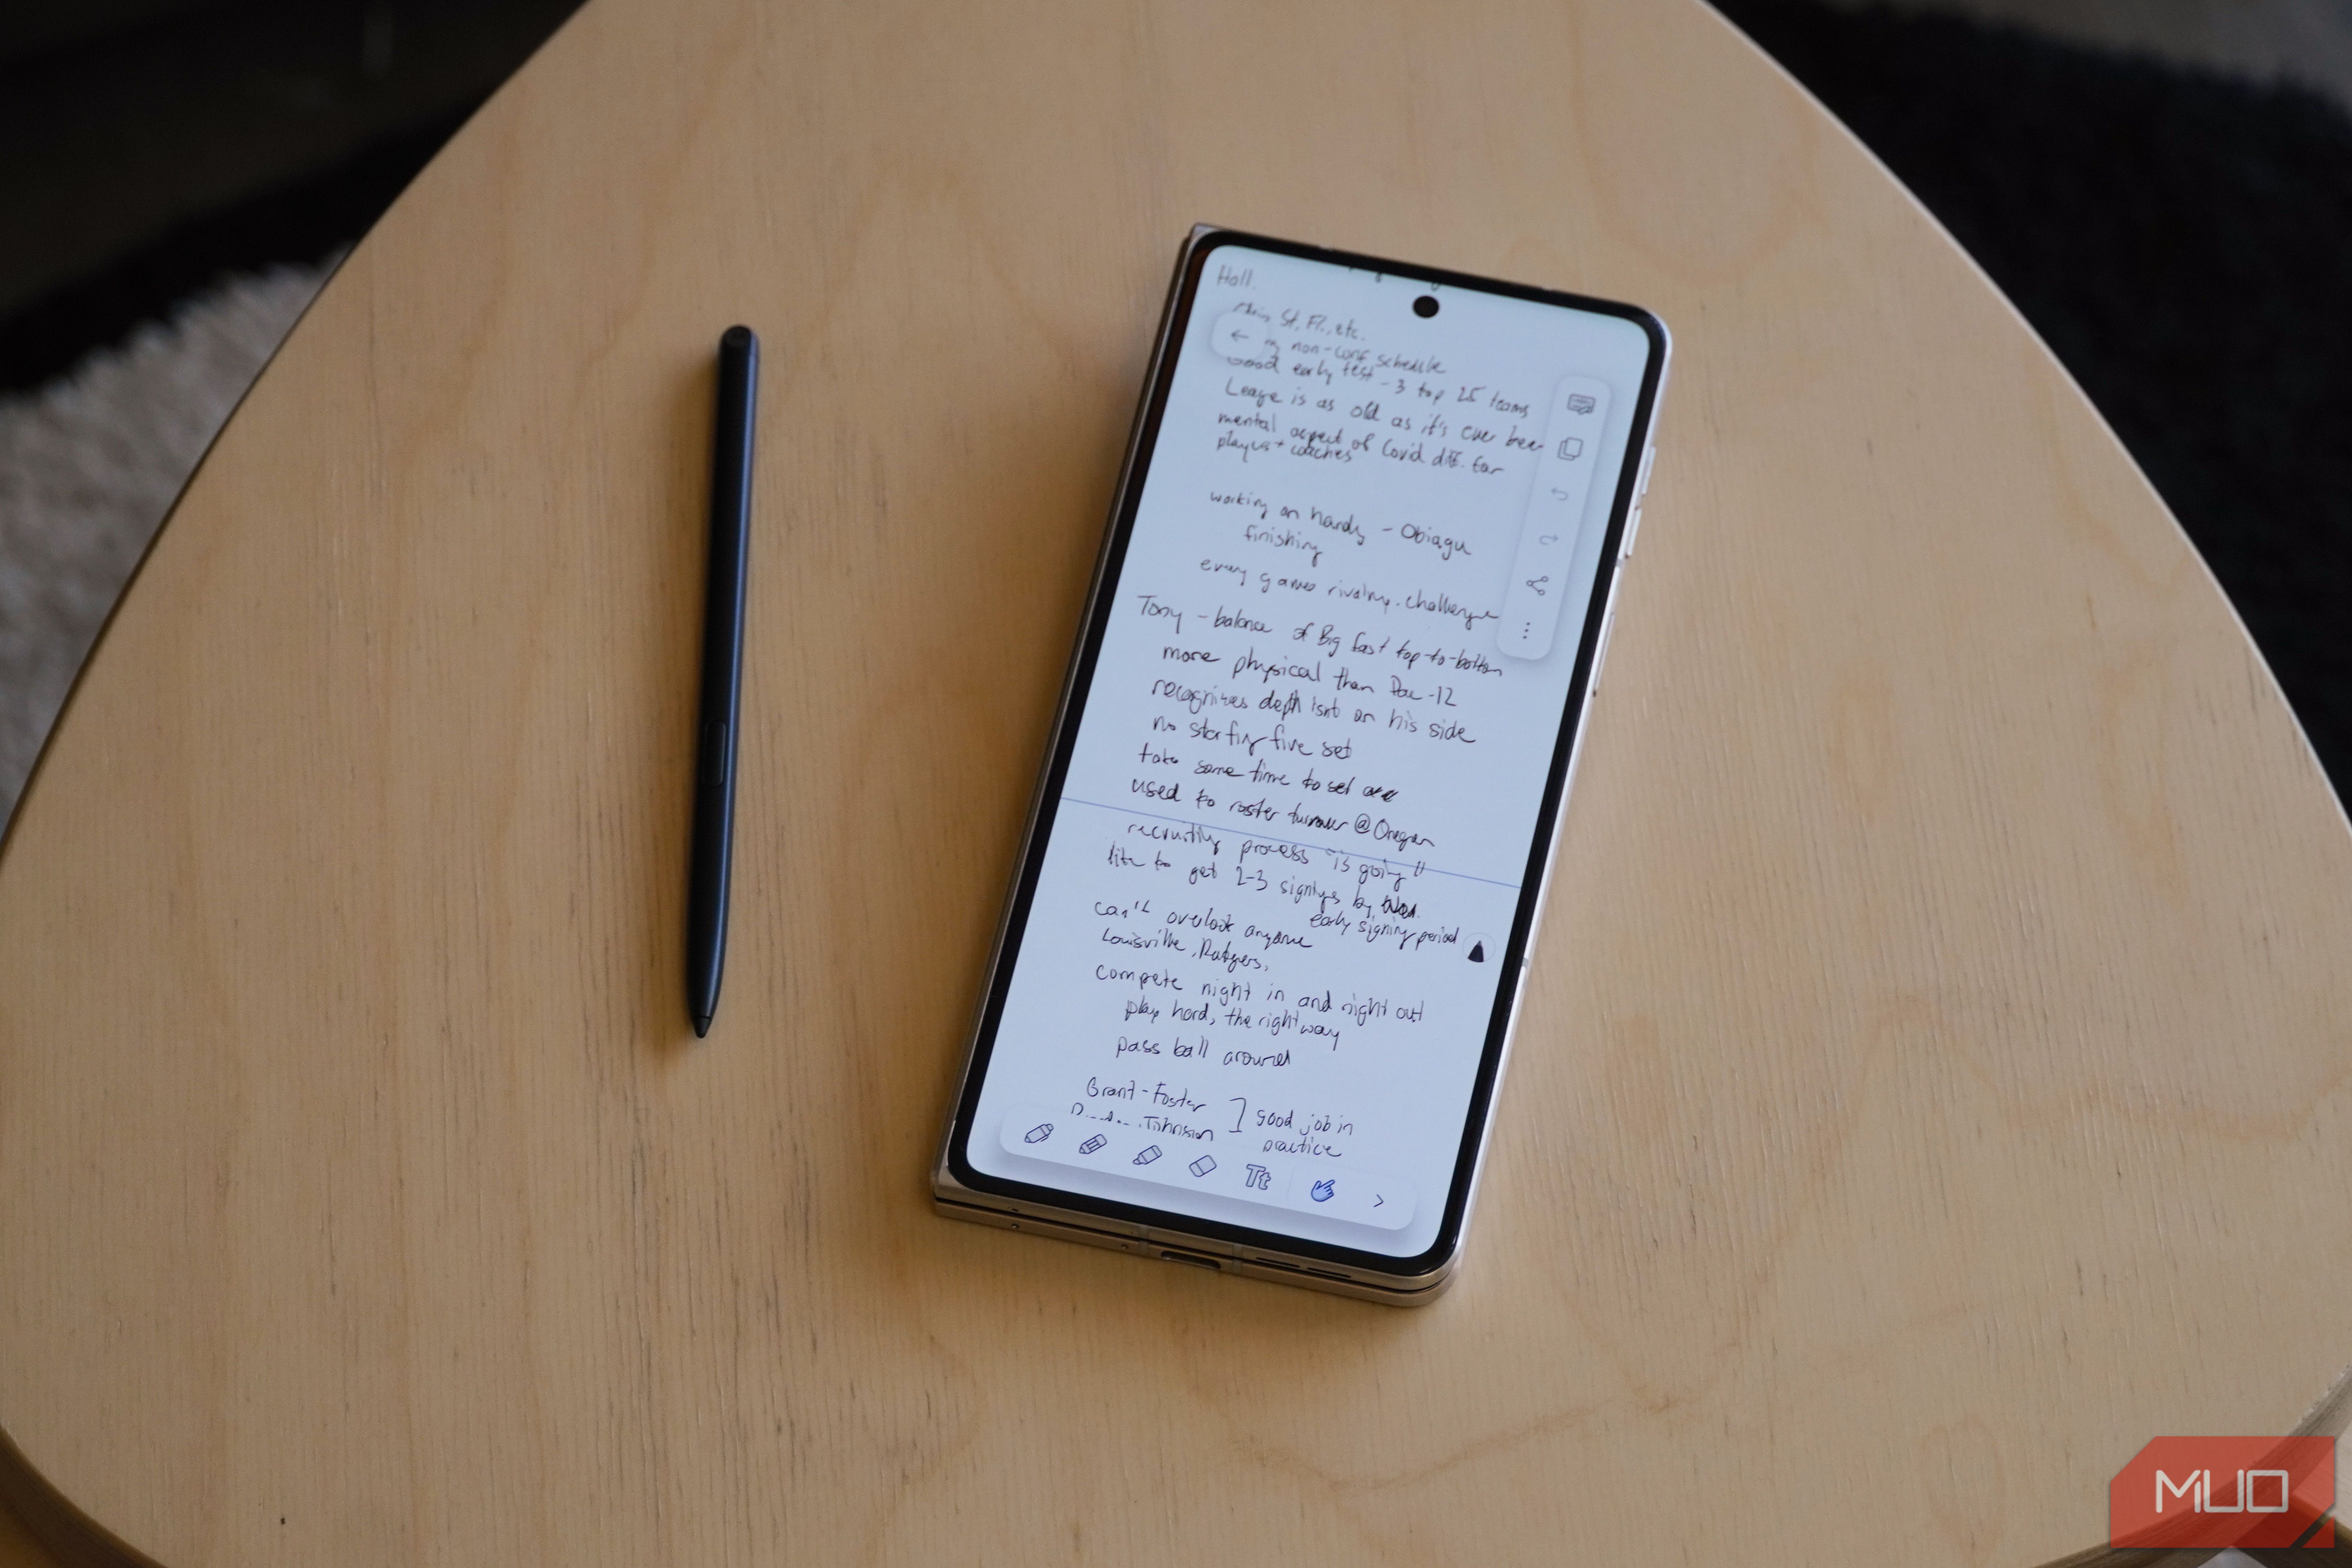 Hall.
St, Fl., etc.
non-conf schedule
Good early test - 3 top 25 teams
League is as old as it's ever been
mental aspect of Covid diff. for
players + coaches
working on hands - Obiagu
finishing
every games rivalry. challenge
Tony - balance of Big East top-to-bottom
more physical than Pac-12
recognizes depth isnt on his side
no starting five set
take some time to set
used to roster turnover @Oregon
recruiting process "is going"
like to get 2-3 signings by Nov.
early signing period
can't overlook anyone
Louisville, Rutgers,
compete night in and night out
play hard, the right way
pass ball around
Grant-Foster
Johnson ] good job in
practice
Tt
MUO